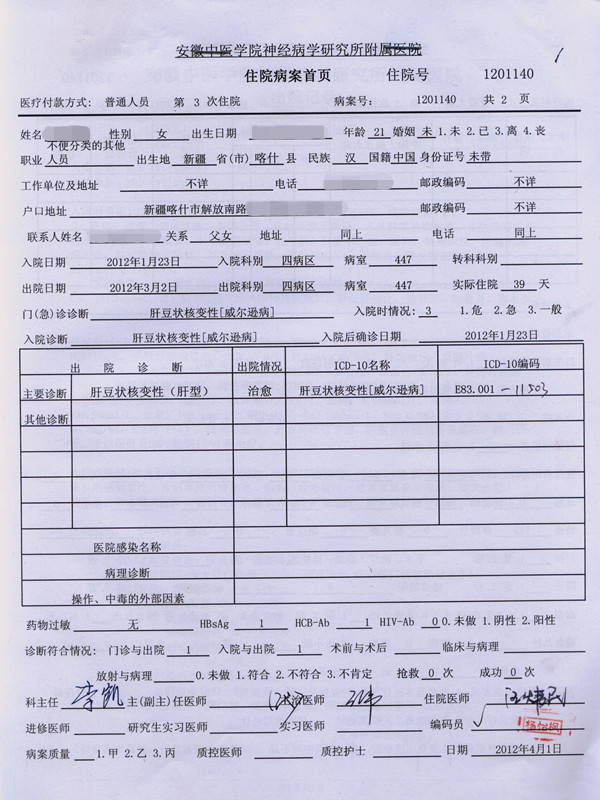 安徽中医学院神经病学研究所附属医院
1
住院病案首页 住院号 1201140
医疗付款方式: 普通人员 第 3 次住院 病案号: 1201140 共 2 页
姓名 性别 女 出生日期 年龄 21 婚姻 未 1.未 2.已 3.离 4.丧
不便分类的其他
职业 人员 出生地 新疆 省(市) 喀什 县 民族 汉 国籍 中国 身份证号 未带
工作单位及地址 不详 电话 邮政编码 不详
户口地址 新疆喀什市解放南路 邮政编码 不详
联系人姓名 关系 父女 地址 同上 电话 同上
入院日期 2012年1月23日 入院科别 四病区 病室 447 转科科别
出院日期 2012年3月2日 出院科别 四病区 病室 447 实际住院 39 天
门(急)诊诊断 肝豆状核变性[威尔逊病] 入院时情况: 3 1.危 2.急 3.一般
入院诊断 肝豆状核变性[威尔逊病] 入院后确诊日期 2012年1月23日
出 院 诊 断 出院情况 ICD-10名称 ICD-10编码
主要诊断 肝豆状核变性（肝型） 治愈 肝豆状核变性[威尔逊病] E83.001 -11503
其他诊断
医院感染名称
病理诊断
操作、中毒的外部因素
药物过敏 无 HBsAg 1 HCB-Ab 1 HIV-Ab 0 0.未做 1.阴性 2.阳性
诊断符合情况: 门诊与出院 1 入院与出院 1 术前与术后 临床与病理
放射与病理 0.未做 1.符合 2.不符合 3.不肯定 抢救 0 次 成功 0 次
科主任 李凯 主(副主)任医师 主治医师 住院医师
进修医师 研究生实习医师 实习医师 编码员
病案质量 1.甲 2.乙 3.丙 质控医师 质控护士 日期 2012年4月1日